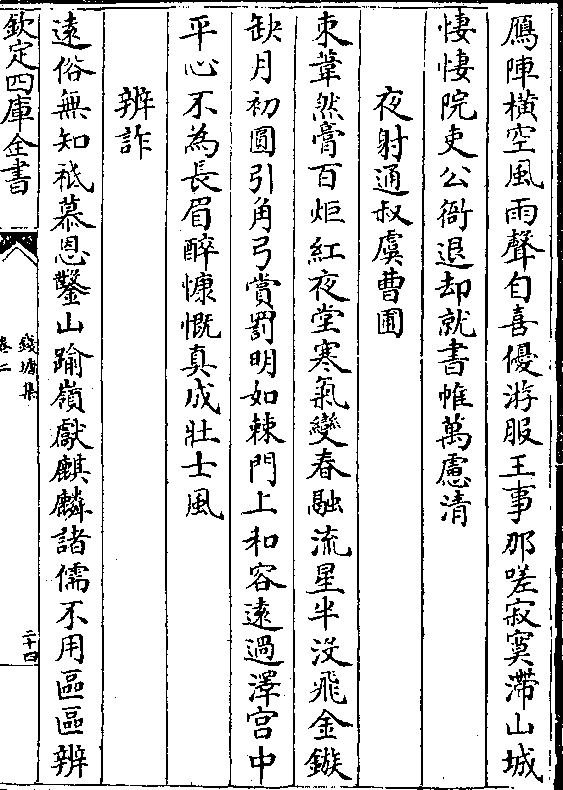 鴈陣橫空風雨聲自喜優游服王事那嗟寂寞滯山城
悽悽院吏公衙退却就書帷萬慮清
夜射通叔虞曹圃
束葦然膏百炬紅夜堂寒氣變春融流星半沒飛金鏃
缺月初圓引角弓賞罰明如棘門上和容遠過澤宫中
平心不為長眉醉慷慨真成壯士風
辨詐
遠俗無知祗慕恩鑿山踰嶺獻麒麟諸儒不用區區辨
欽定四庫全書
錢塘集
卷二
二十四